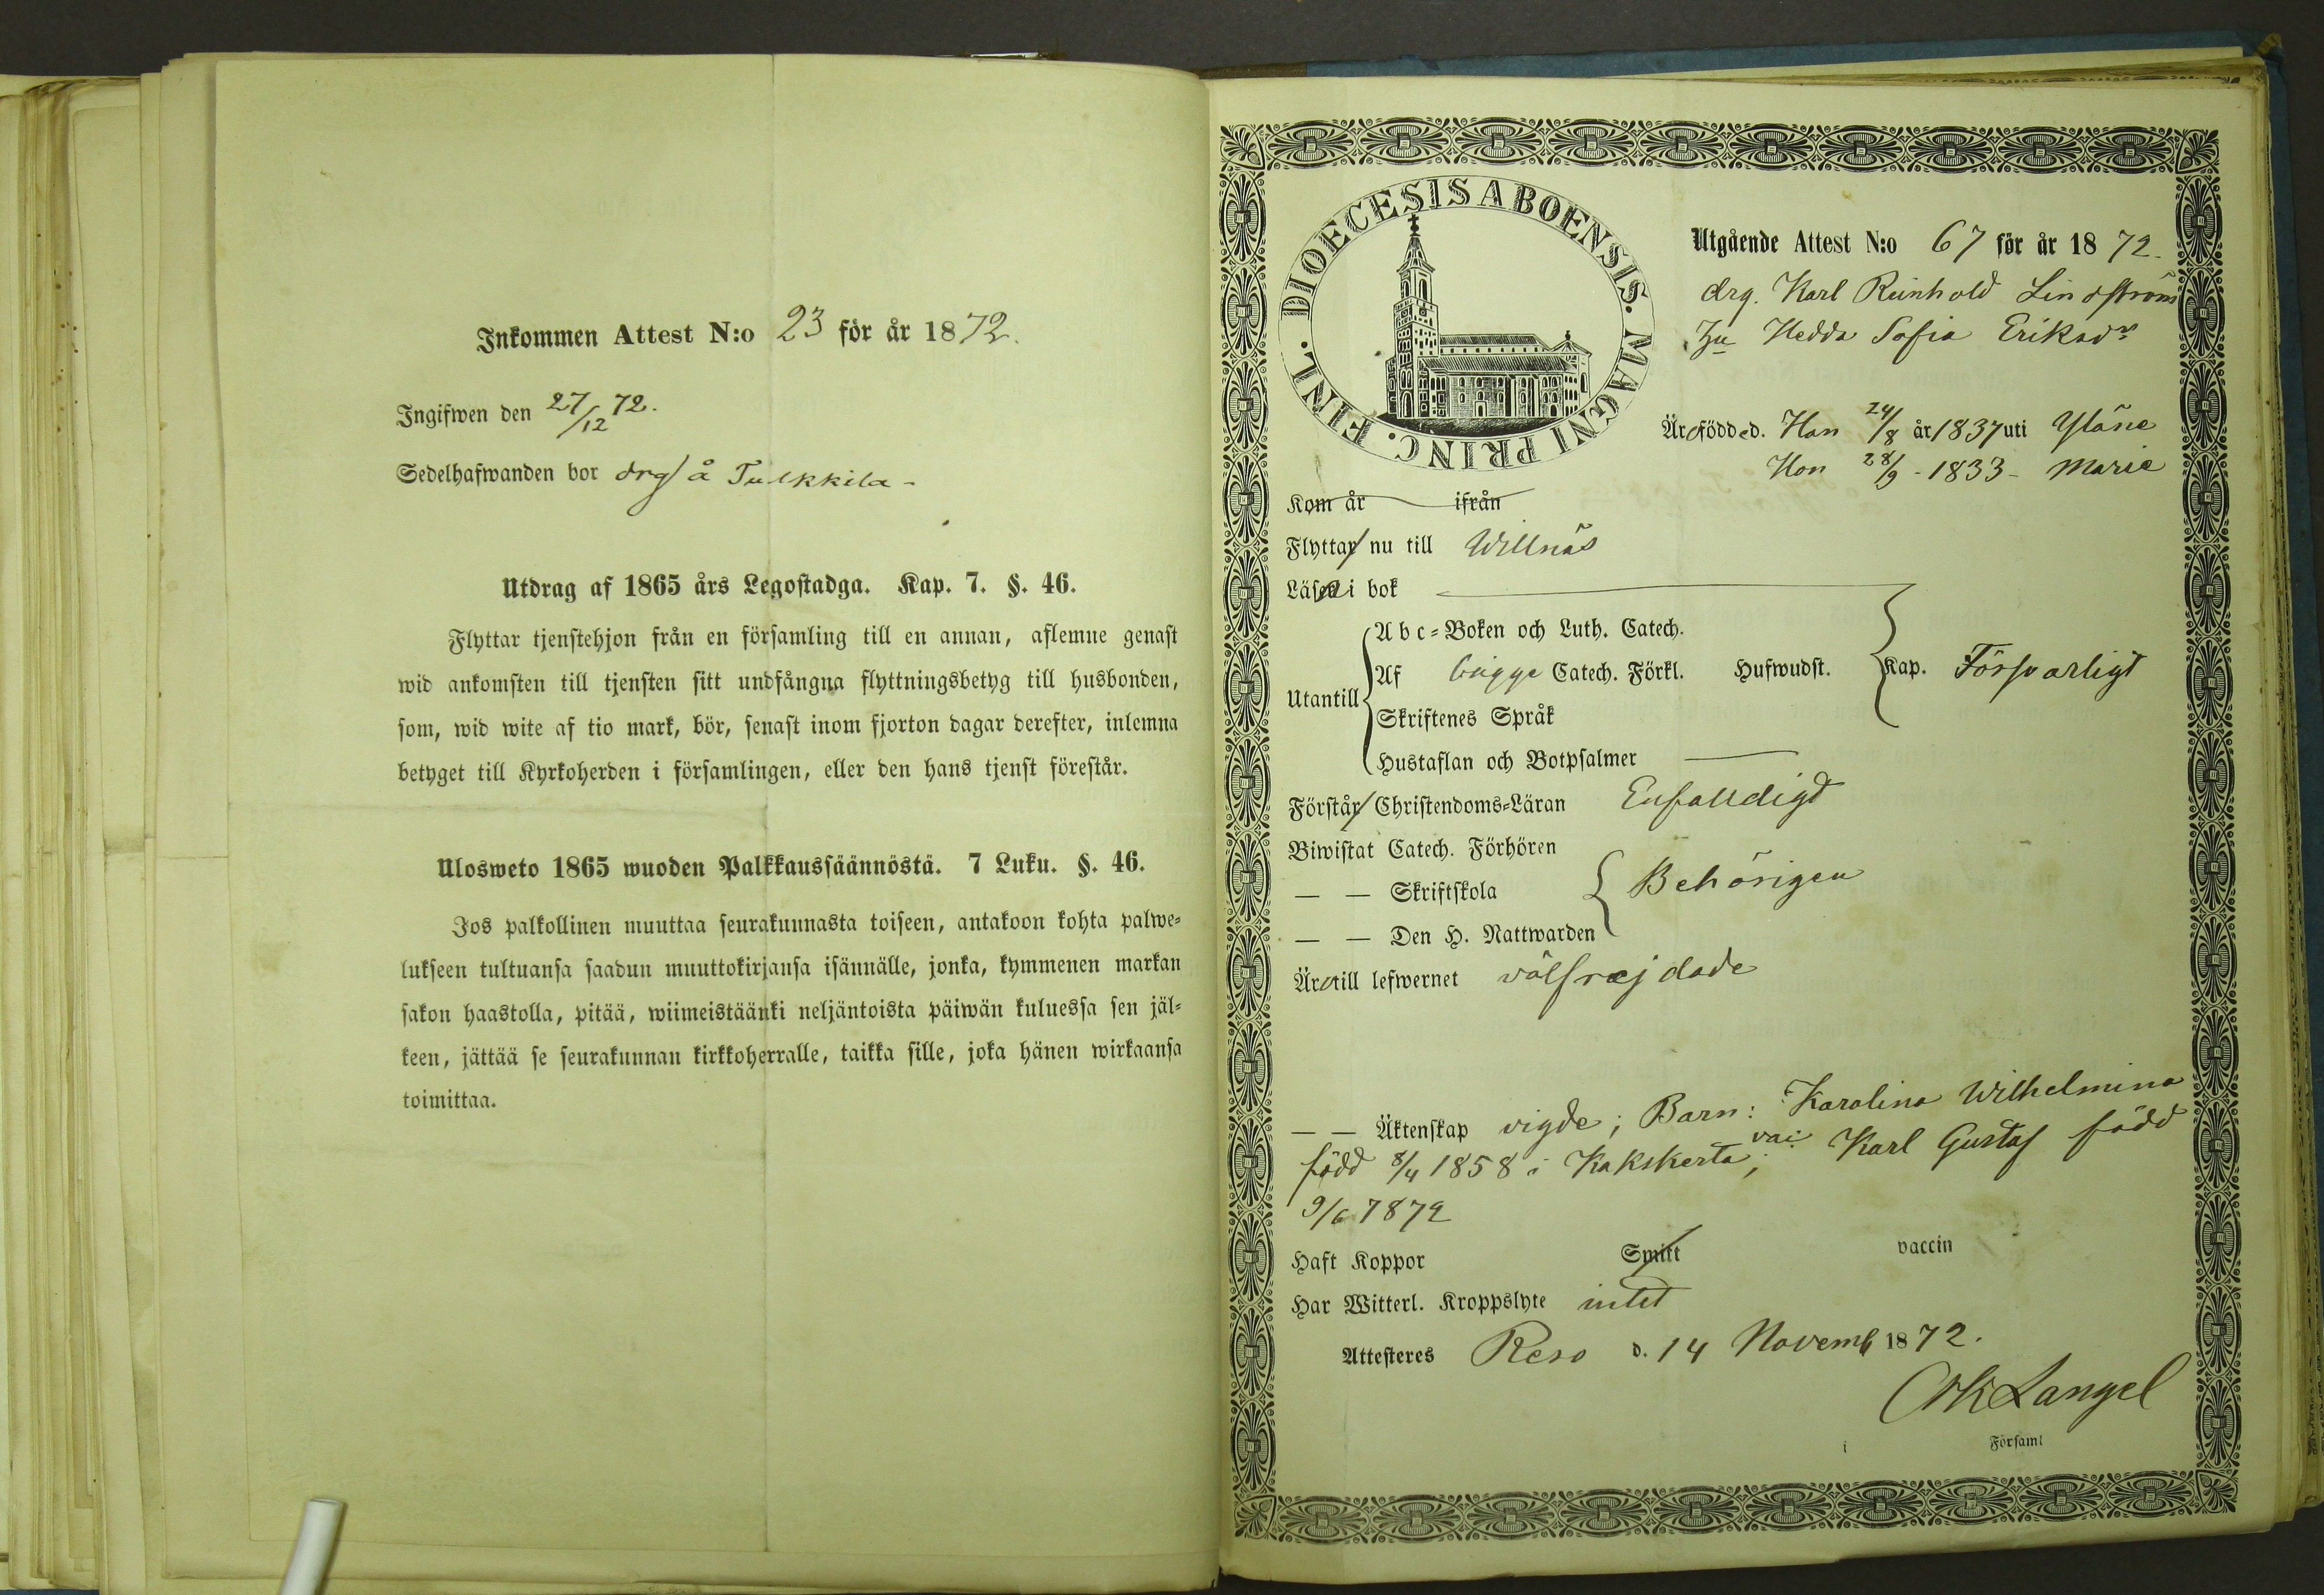 Inkommen Attest N:o 23 för år 1872.
Ingifwen den 27/12 72.
Sedelhafwanden bor drg å Tulkkila -
Utdrag af 1865 års Legostadga. Kap. 7. §. 46.
Flyttar tjenstehjon från en församling till en annan, aflemne genast
wid ankomsten till tjensten sitt undfångna flyttningsbetyg till husbonden,
som, wid wite af tio mark, bör, senast inom fjorton dagar derefter, inlemna
betyget till Kyrkoherden i församlingen, eller den hans tjenst förestår.
Ulosweto 1865 wuoden Palkkaussäännöstä. 7 Luku. §. 46.
Jos palkollinen muuttaa seurakunnasta toiseen, antakoon kohta palwe-
lukseen tultuansa saadun muuttokirjansa isännälle, jonka, kymmenen markan
sakon haastolla, pitää, wiimeistäänki neljäntoista päiwän kuluessa sen jäl-
keen, jättää se seurakunnan kirkkoherralle, taikka sille, joka hänen wirkaansa
toimittaa.
FINL. DIOECESIS ABOENSIS. MAGNI PRINC.
Utgående Attest N:o 67 för år 1872.
drg. Karl Reinhold Lindström
Hu Hedda Sofia Eriksdr
Äro födde d. Han 24/8 år 1837 uti Yläne
Hon 28/9 - 1833 - Marie
Kom år ifrån
Flyttar nu till Willnäs
Läsa i bok
Abc-Boken och Luth. Catech.
Utantill Af bägge Catech. Förkl. Hufwudst. Kap. Försvarligt
Skriftenes Språk
Hustaflan och Botpsalmer
Förstår Christendoms-Läran Enfalldigt
Biwistat Catech. Förhören
— — Skriftskola Behörigen
— — Den H. Nattwarden
Äro till lefwernet välfrejdade
— — Äktenskap vigde; Barn: Karolina Wilhelmina
född 8/4 1858 i Kakskerta; vac: Karl Gustaf född
9/6 1872
Haft Koppor Smitt vaccin
Har Witterl. Kroppslyte intet
Attesteres Reso d. 14 Novemb 1872.
Langel
i Församl